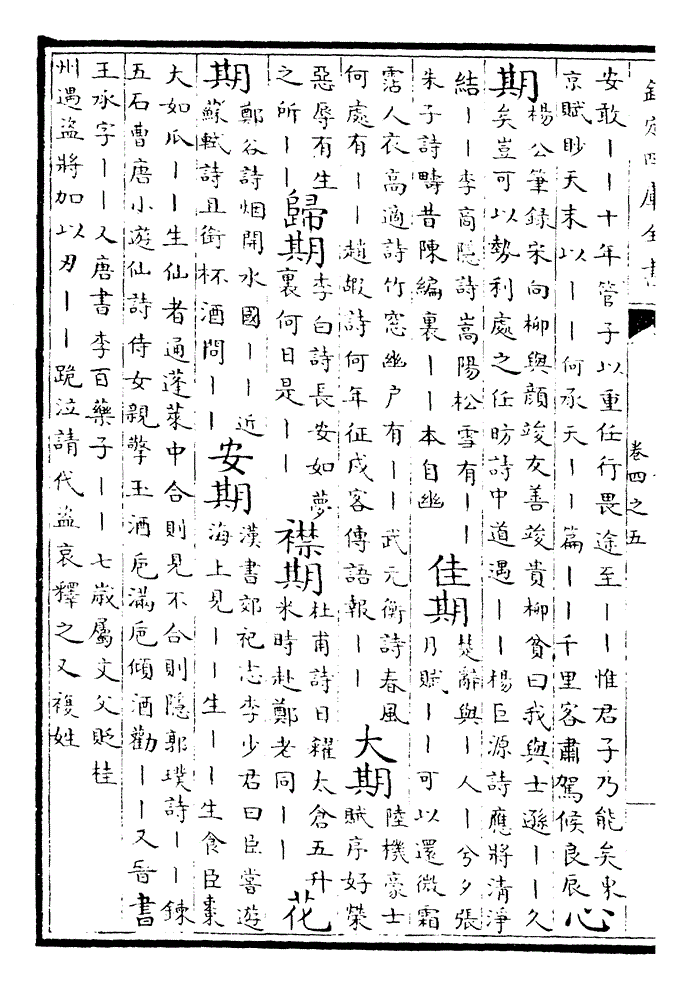 欽定四庫全書 卷四之五
安敢丨丨十年管子以重任行畏途至丨丨惟君子乃能矣東
京賦眇天末以丨丨何承天丨丨篇丨丨千里客肅駕候良辰
心
期
楊公筆錄宋向柳與顔竣友善竣貴柳貧曰我與士遜丨丨久
矣豈可以勢利處之任昉詩中道遇丨丨楊巨源詩應將清淨
結丨丨李高隱詩嵩陽松雪有丨丨
朱子詩疇昔陳編裏丨丨本自幽
佳期
楚辭與丨人丨兮夕張
月賦丨丨可以還微霜
霑人衣高適詩竹窓幽户有丨丨武元衡詩春風
何處有丨丨趙嘏詩何年征戍客傳語報丨丨
大期
陸機豪士
賦序好榮
惡辱有生
之所丨丨
歸期
李白詩長安如夢
裏何日是丨丨
襟期
杜甫詩日糴太倉五升
米時赴鄭老同丨丨
花
期
鄭谷詩烟開水國丨丨近
蘇軾詩且銜杯酒問丨丨
安期
漢書郊祀志李少君曰臣嘗遊
海上見丨丨生丨丨生食臣棗
大如瓜丨丨生仙者通蓬萊中合則見不合則隱郭璞詩丨丨鍊
五石曹唐小遊仙詩侍女親擎玉酒巵滿巵傾酒勸丨丨又晉書
王承字丨丨又唐書李百藥子丨丨七歲屬文父貶桂
州遇盜將加以刃丨丨跪泣請代盜哀釋之又複姓